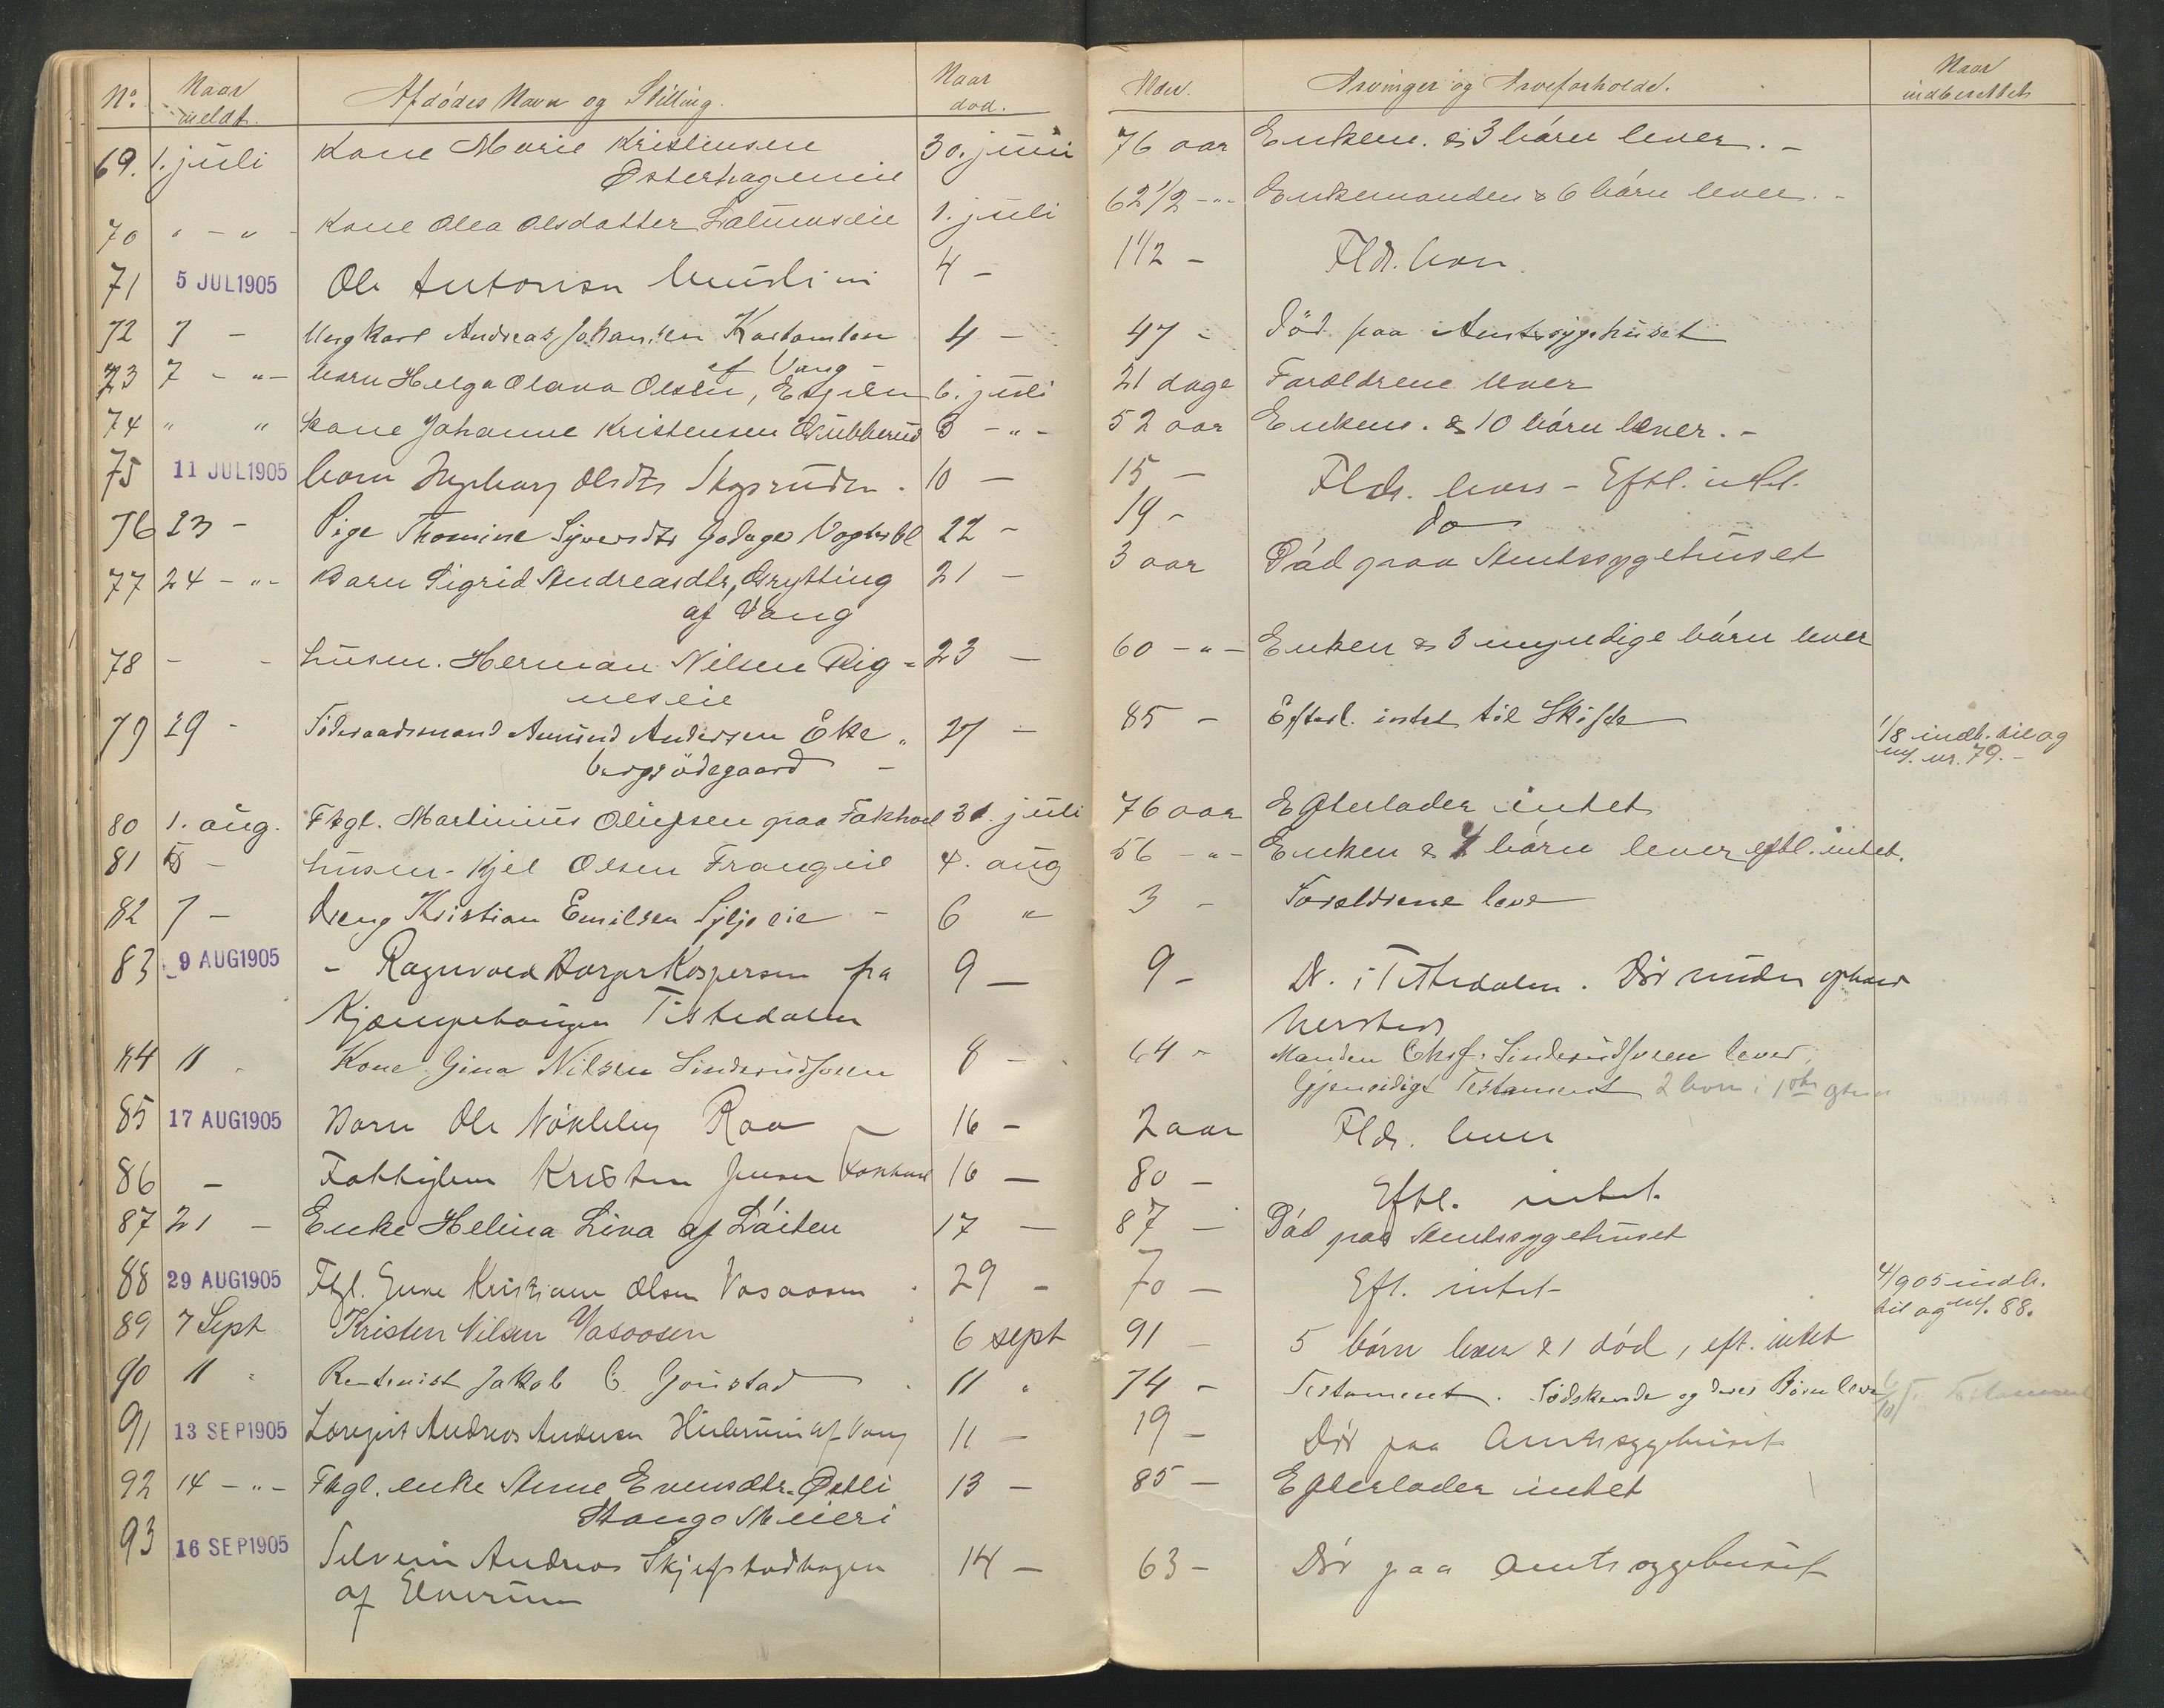 No. Naar meldt. Afdødes Navn og Stilling. Naar død. Alder. Arvinger og Arveforholde. Naar indberettet
69. 1. juli Kone Marie Kristiansen 30. juni 76 aar Enkem. & 3 børn lever. -
Østerhageneie
70 " - " - Kone Olea Olsdatter eie 1. juli 62 1/2 - " - Enkemanden & 6 børn lever. -
71 5 JUL 1905 Ole Antonsen 4 - 1 1/2 - Fldr. lever.
72 7 - Ungkarl Andreas Johansen 4 - 47 - Død paa Amtssygehuset
af Vang -
73 7 - " - barn Helga Olava Olsen, 6. juli 21 dage Forældrene lever
74 " " Kone Johanne Kristensen Gubberud 6 - " - 52 aar Enkem. & 10 børn lever. -
75 11 JUL 1905 barn Ingeborg Olsdtr 10 - 15 - Fldr. lever - Eftl. intet.
76 23 - Pige Thomine Syversdtr 22 - 19 - do
77 24 - " - Barn Sigrid Andreasdtr, Grytting 21 - 3 aar Død paa Amtssygehuset
af Vang
78 - - husm. Herman Nilsen Rig - 23 - 60 - " - Enken & 3 myndige børn lever
neseie
79 29 - Føderaadsmand Amund Andersen Eke - 27 - 85 - Efterl. intet til Skifte 1/8 indb. til og
bergsødegaard - m. nr. 79. -
80 1. aug. Ftgl. Martinius Olufsen paa Fakhol 31. juli 76 aar Efterlader intet
81 5 - husm. Kjel Olsen Frangeie 4. aug 56 - " - Enken & 4 børn lever eftl. intet.
82 7 - Dreng Kristian Emilsen eie - 6 " 3 - Forældrene lever
83 9 AUG 1905 - Ragnvald Kaspersen fra 9 - 9 - i Tistedalen. Dør under ophold
Tistedalen hersteds
84 11 Kone Gina Nilsen Linderudsveen 8 - 64 - Manden Linderudsveen lever.
Gjensidigt Testament 2 barn i 1ste
85 17 AUG 1905 Barn Ole Nøkleby Raa 16 - 2 aar Fldr. lever
86 - Fattiglem Kristen Jensen Fakhol 16 - 80 - Eftl. intet.
87 21 - Enke Helina Liva af Løiten 17 - 87 - Død paa Amtssygehuset
88 29 AUG 1905 Ftgl. Enke Kristiane Olsen Vasaasen 29 - 70 - Eft. intet - 4/9 05 indb.
til og m. 88.
89 7 Sept Kristen Nilsen Vasaasen 6 sept 91 - 5 børn lever & 1 død, eft. intet
90 11 " Rentenist Jakob C. Gaustad 11 " 74 - Testament. Sødskende og deres Børn lever
91 13 SEP 1905 Andreas Andersen af Vang 11 - 19 - Dør paa Amtssygehuset
92 14 - " - Ftgl. enke Anne Evensdtr. 13 - 85 - Efterlader intet
Stange Meieri
93 16 SEP 1905 Andreas Skjefstadhagen 14 - 63 - Dør paa Amtssygehuset
af Elverum